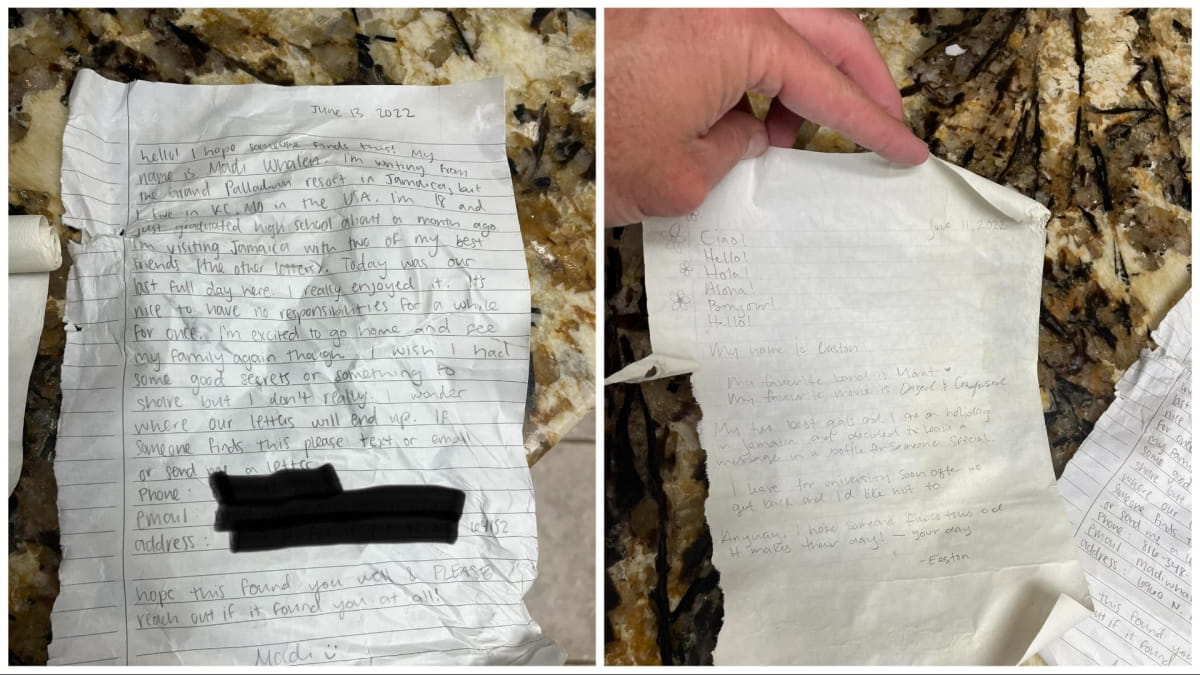 June 13 2022
hello! I hope someone finds this! My
name is Madi Whalen. I'm writing from
the Grand Palladium resort in Jamaica, but
I live in KC, MO in the USA. I'm 18 and
just graduated high school about a month ago.
I'm visiting Jamaica with two of my best
friends (the other letters). Today was our
last full day here. I really enjoyed it. It's
nice to have no responsibilities for a while
for once. I'm excited to go home and see
my family again though. I wish I had
some good secrets or something to
share but I don't really. I wonder
where our letters will end up. If
someone finds this please text or email
or send me a letter
Phone:
email
address:
hope this found you well & PLEASE
reach out if it found you at all!
Madi
June 11, 2022
Ciao!
Hello!
Hola!
Aloha!
Bonjour!
Hello!
My name is Easton
My favourite band is
My favourite movie is Dazed & Confused
My two best gals and I are on holiday
in Jamaica and decided to leave a
message in a bottle for someone special.
I leave for university soon after we
get back and I'd like not to.
Anyway, I hope someone finds this and
it makes their day! — your day
-Easton
last
nice
for
my fam
some good
share bu
where our
someone finds
or send m
Phone:
email
address:
this found
out if it found